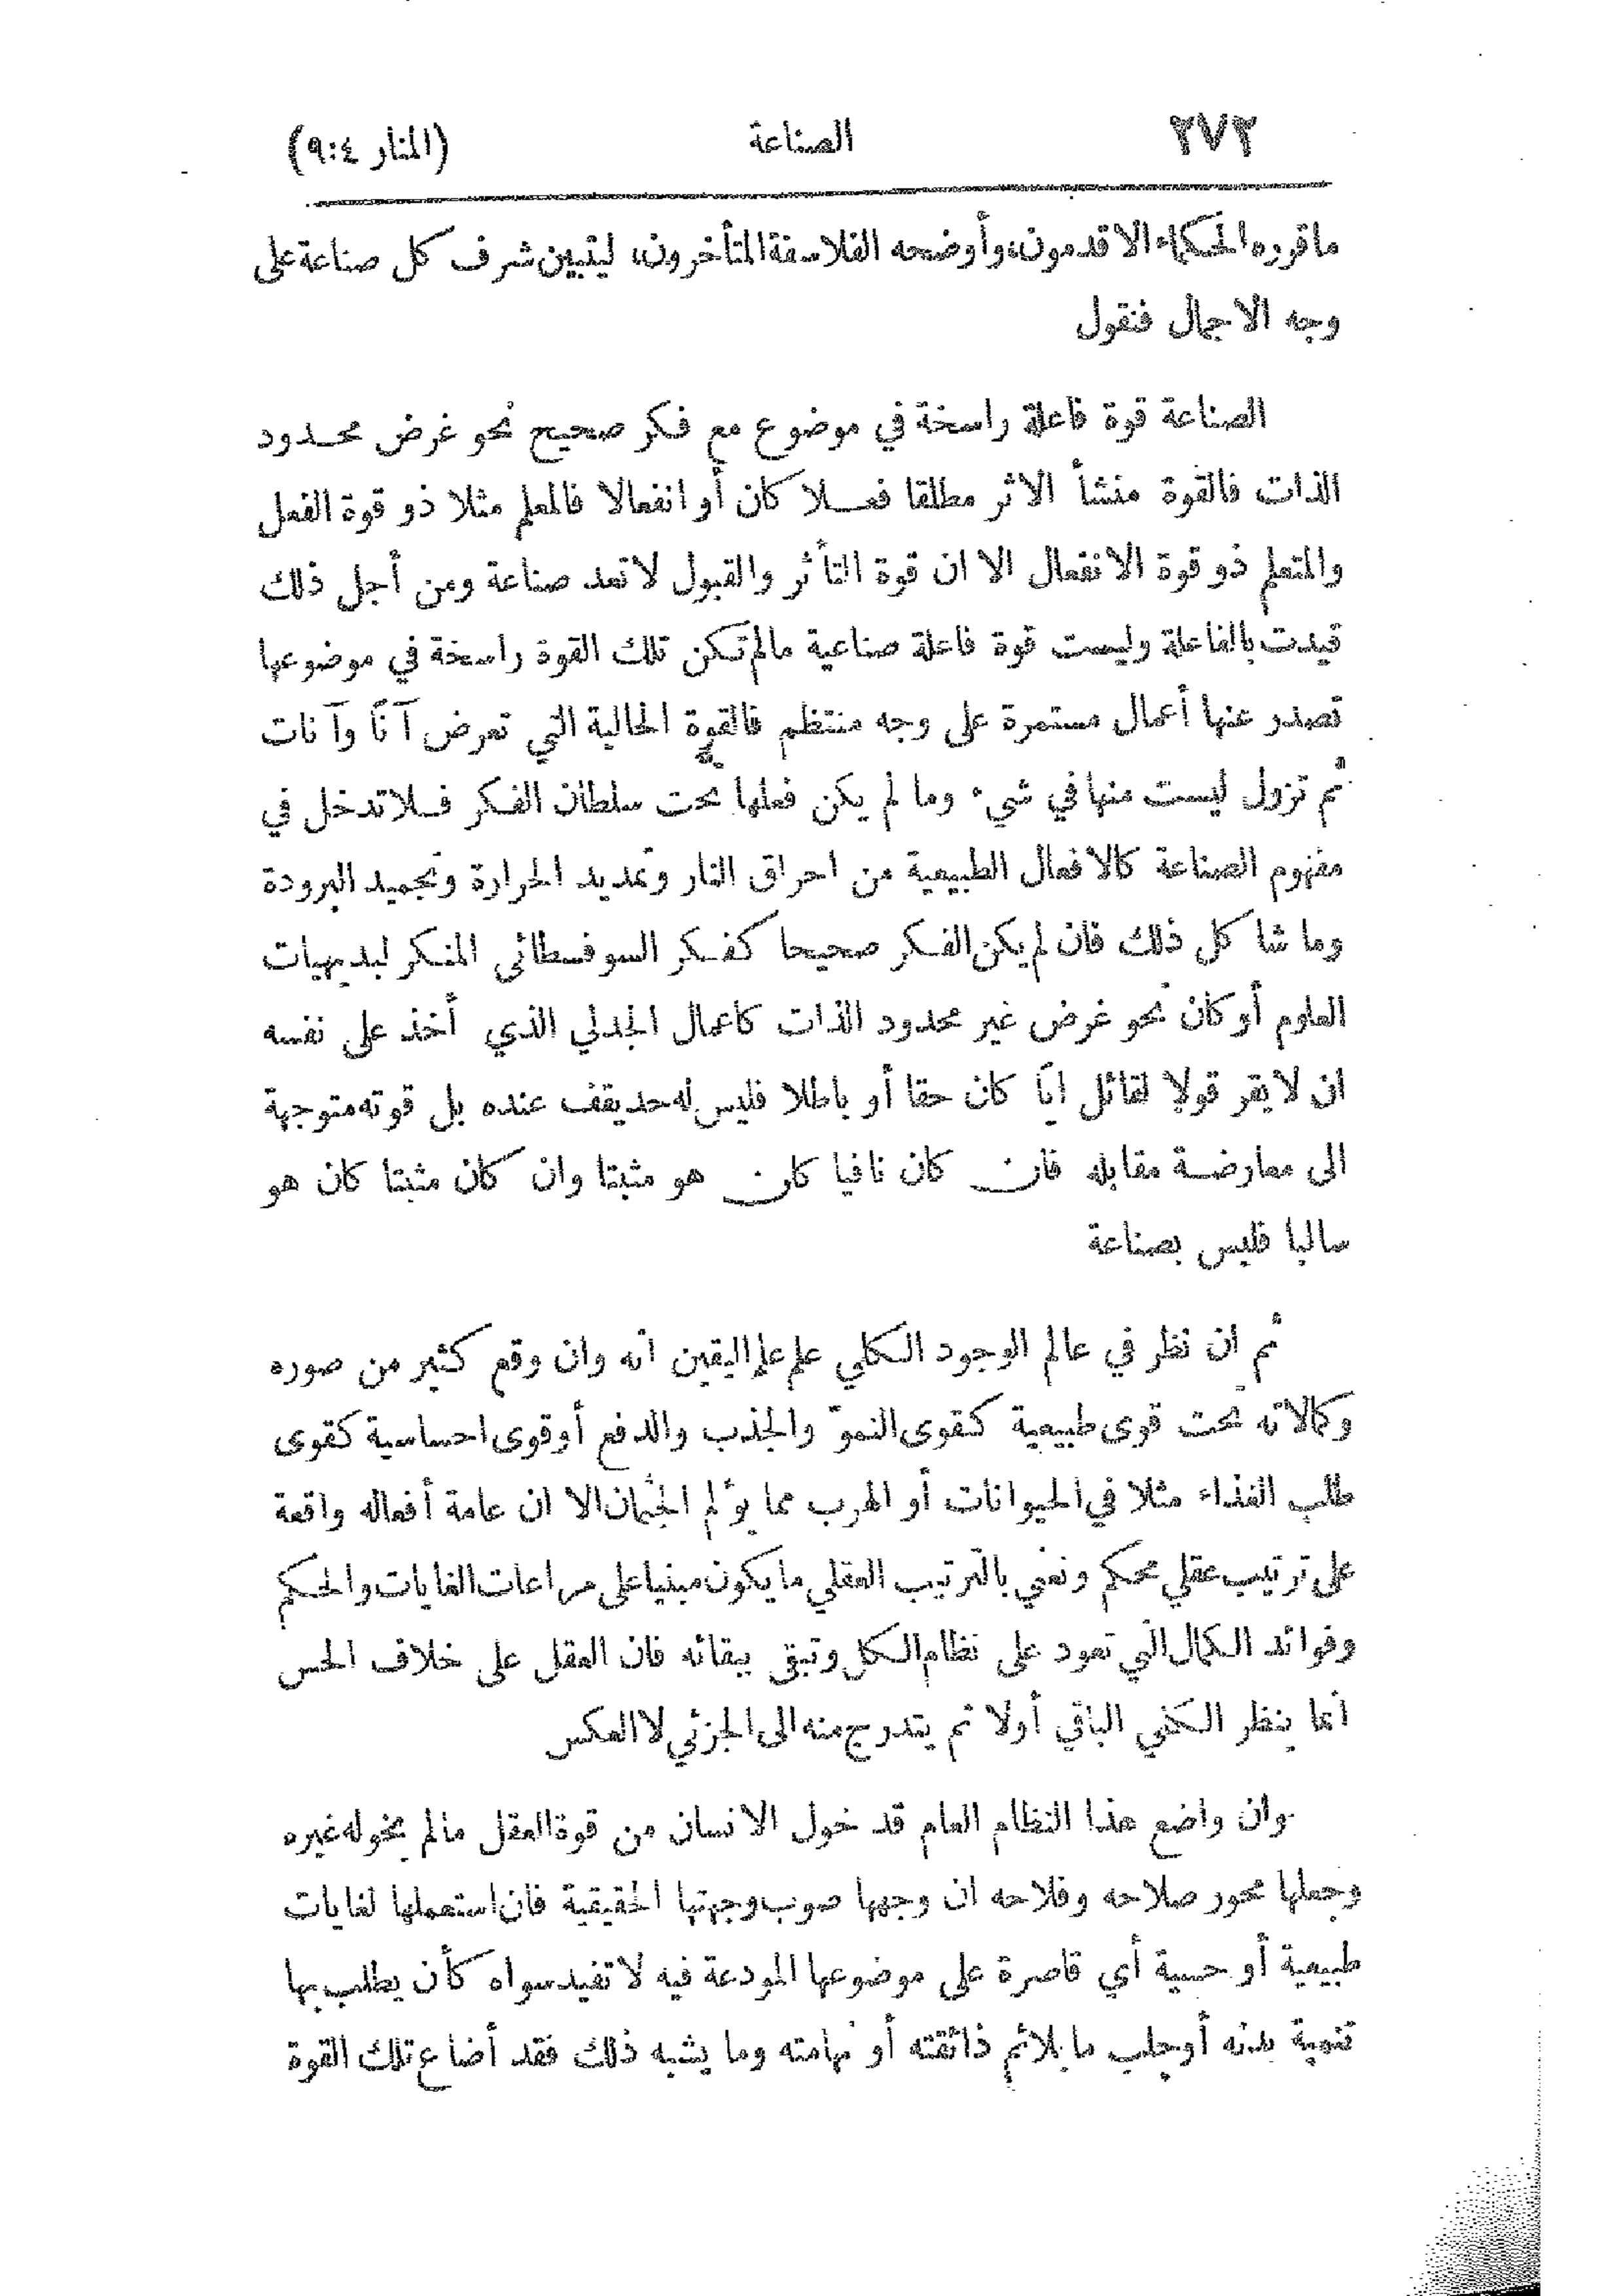 ٢٧٢ الصناعة (المنار ٩:٤)
ما قرره الحكماء الاقدمون، وأوضحه الفلاسفة المتأخرون، ليتبين شرف كل صناعة على
وجه الاجمال فنقول
الصناعة قوة فاعلة راسخة في موضوع مع فكر صحيح نحو غرض محدود
الذات فالقوة منشأ الاثر مطلقا فعلا كان أو انفعالا فالمعلم مثلا ذو قوة الفعل
والمتعلم ذو قوة الانفعال الا ان قوة التأثر والقبول لا تعد صناعة ومن أجل ذلك
قيدت بالفاعلة وليست قوة فاعلة صناعية مالم تكن تلك القوة راسخة في موضوعها
تصدر عنها أعمال مستمرة على وجه منتظم فالقوة الحالية التي تعرض آناً وآنات
ثم تزول ليست منها في شيء وما لم يكن فعلها تحت سلطان الفكر فلا تدخل في
مفهوم الصناعة كالافعال الطبيعية من احراق النار وتمديد الحرارة وتجميد البرودة
وما شا كل ذلك فان لم يكن الفكر صحيحا كفكر السوفسطائي المنكر لبديهيات
العلوم أو كان نحو غرض غير محدود الذات كاعمال الجدلي الذي أخذ على نفسه
ان لا يقر قولا لقائل ايّا كان حقا أو باطلا فليس له حد يقف عنده بل قوته متوجهة
الى معارضة مقابله فان كان نافيا كان هو مثبتا وان كان مثبتا كان هو
سالبا فليس بصناعة
ثم ان نظر في عالم الوجود الكلي علم علم اليقين انه وان وقع كثير من صوره
وكمالاته تحت قوى طبيعية كقوى النموّ والجذب والدفع أو قوى احساسية كقوى
طلب الغذاء مثلا في الحيوانات أو الهرب مما يؤلم الجثمان الا ان عامة أفعاله واقعة
على ترتيب عقلي محكم ونعني بالترتيب العقلي ما يكون مبنيا على مراعات الغايات والحكم
وفوائد الكمال التي تعود على نظام الكل وتبقى ببقائه فان العقل على خلاف الحس
انما ينظر الكلي الباقي أولا ثم يتدرج منه الى الجزئي لا العكس
وان واضع هذا النظام العام قد خول الانسان من قوة العقل مالم يخوله غيره
وجعلها محور صلاحه وفلاحه ان وجهها صوب وجهتها الحقيقية فان استعملها لغايات
طبيعية أو حسية أي قاصرة على موضوعها المودعة فيه لا تفيد سواه كأن يطلب بها
تنمية بدنه أو جلب ما يلائم ذائقته أو نهامته وما يشبه ذلك فقد أضاع تلك القوة